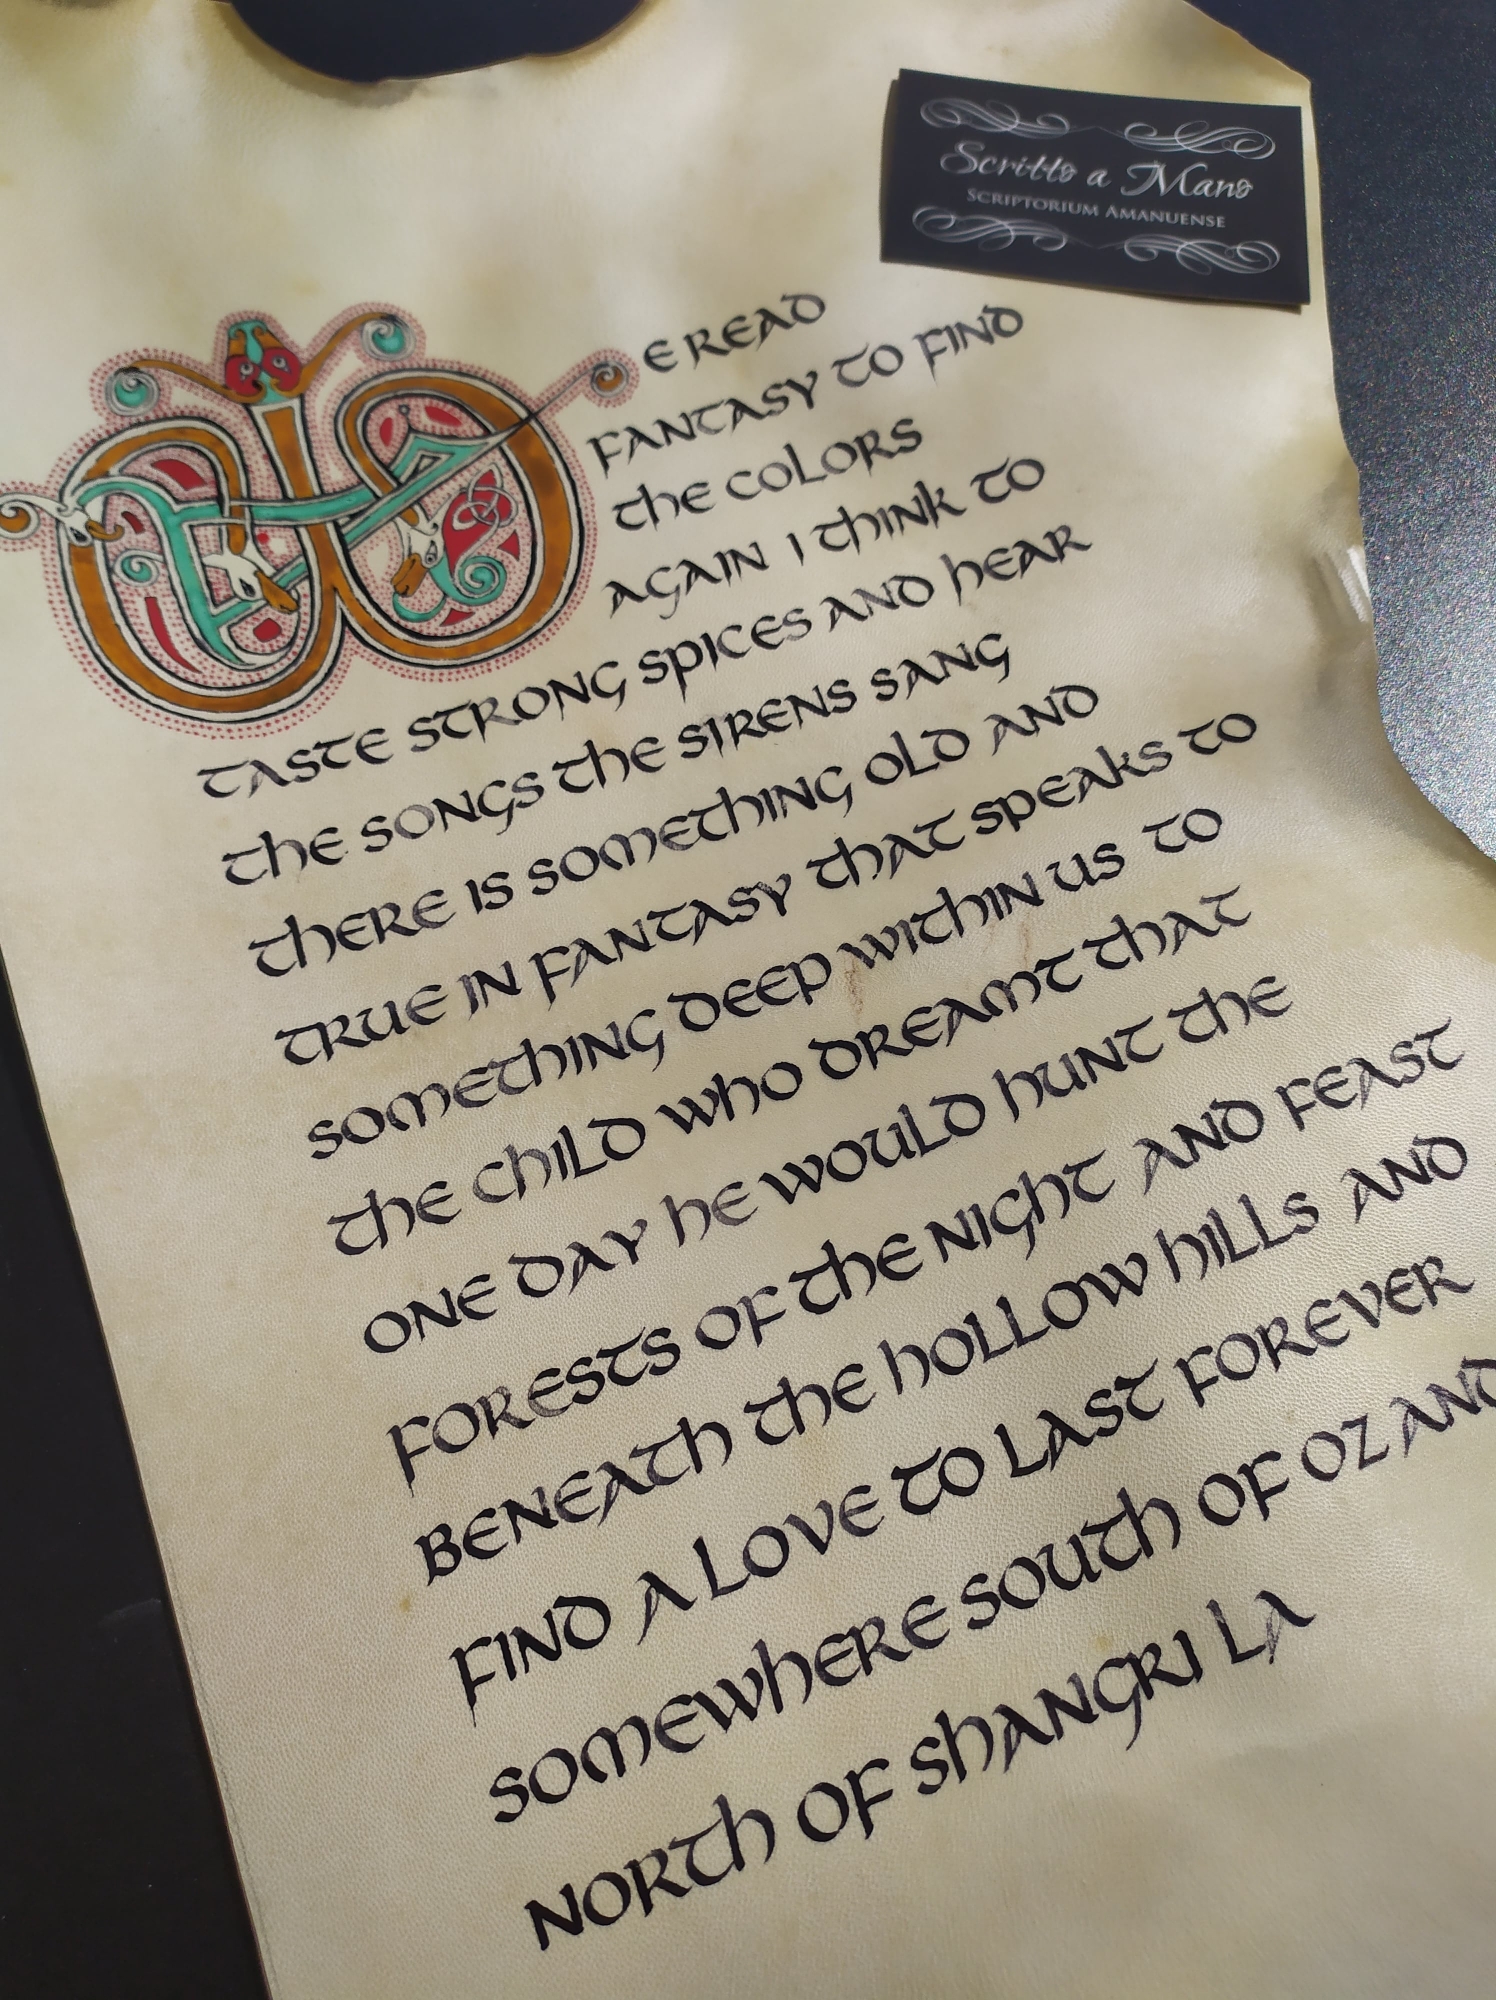 Scritto a Mano
SCRIPTORIUM AMANUENSE
WE READ
FANTASY TO FIND
THE COLORS
AGAIN I THINK TO
TASTE STRONG SPICES AND HEAR
THE SONGS THE SIRENS SANG
THERE IS SOMETHING OLD AND
TRUE IN FANTASY THAT SPEAKS TO
SOMETHING DEEP WITHIN US TO
THE CHILD WHO DREAMT THAT
ONE DAY HE WOULD HUNT THE
FORESTS OF THE NIGHT AND FEAST
BENEATH THE HOLLOW HILLS AND
FIND A LOVE TO LAST FOREVER
SOMEWHERE SOUTH OF OZ AND
NORTH OF SHANGRI LA